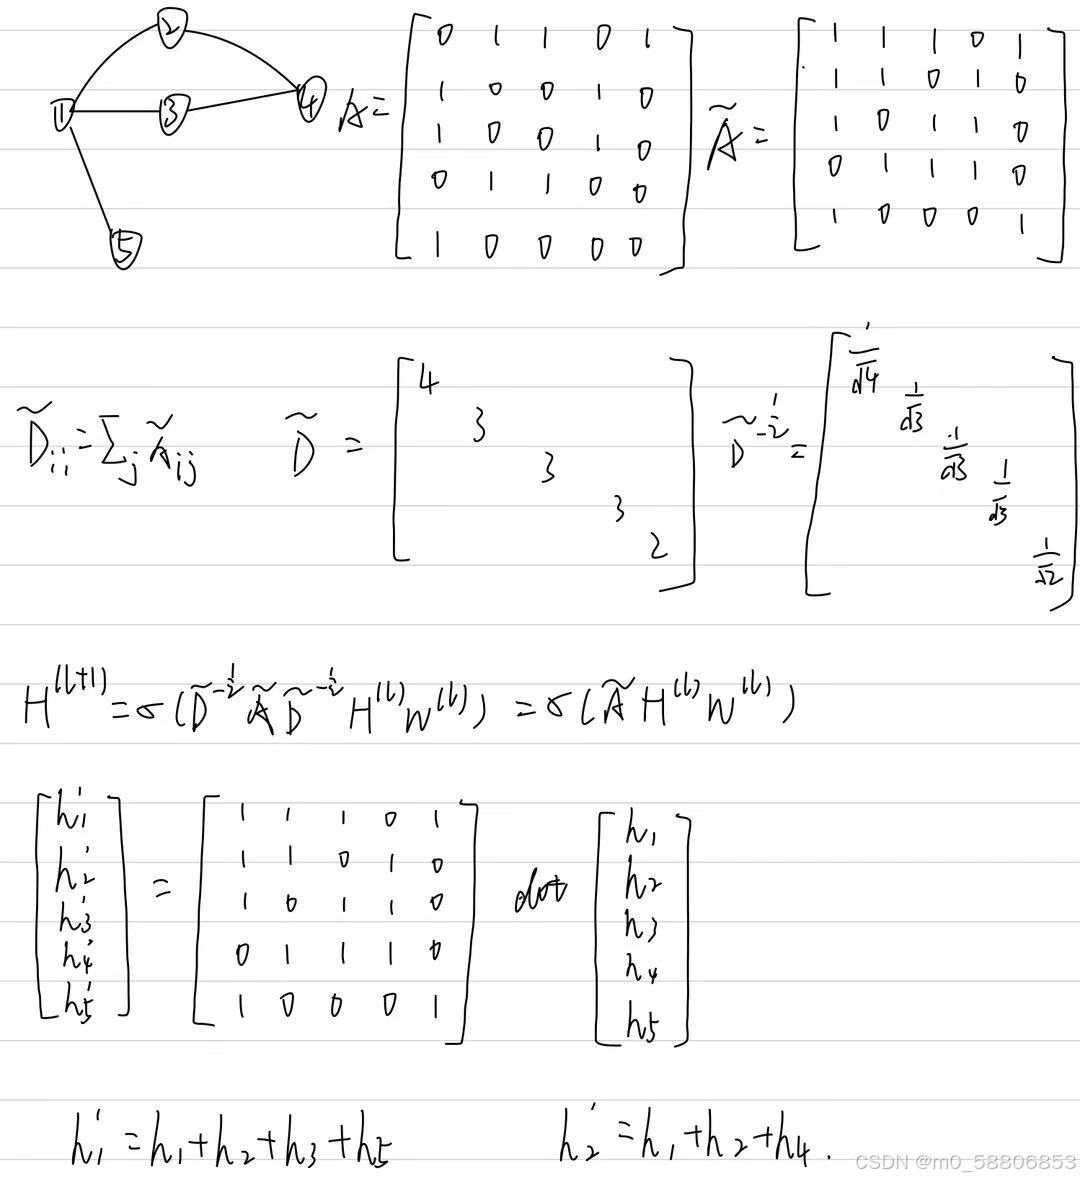 2
1 3 4
5
A = [ 0 1 1 0 1
1 0 0 1 0
1 0 0 1 0
0 1 1 0 0
1 0 0 0 0 ]
Ã = [ 1 1 1 0 1
1 1 0 1 0
1 0 1 1 0
0 1 1 1 0
1 0 0 0 1 ]
D̃ᵢᵢ = Σⱼ Ãᵢⱼ
D̃ = [ 4
3
3
3
2 ]
D̃^{-1/2} = [ 1/√4
1/√3
1/√3
1/√3
1/√2 ]
H^{(l+1)} = σ(D̃^{-1/2} Ã D̃^{-1/2} H^{(l)} W^{(l)}) = σ(Ã H^{(l)} W^{(l)})
[ h₁'
h₂'
h₃'
h₄'
h₅' ]
= [ 1 1 1 0 1
1 1 0 1 0
1 0 1 1 0
0 1 1 1 0
1 0 0 0 1 ]
dot
[ h₁
h₂
h₃
h₄
h₅ ]
h₁' = h₁+h₂+h₃+h₅
h₂' = h₁+h₂+h₄.
CSDN @m0_58806853